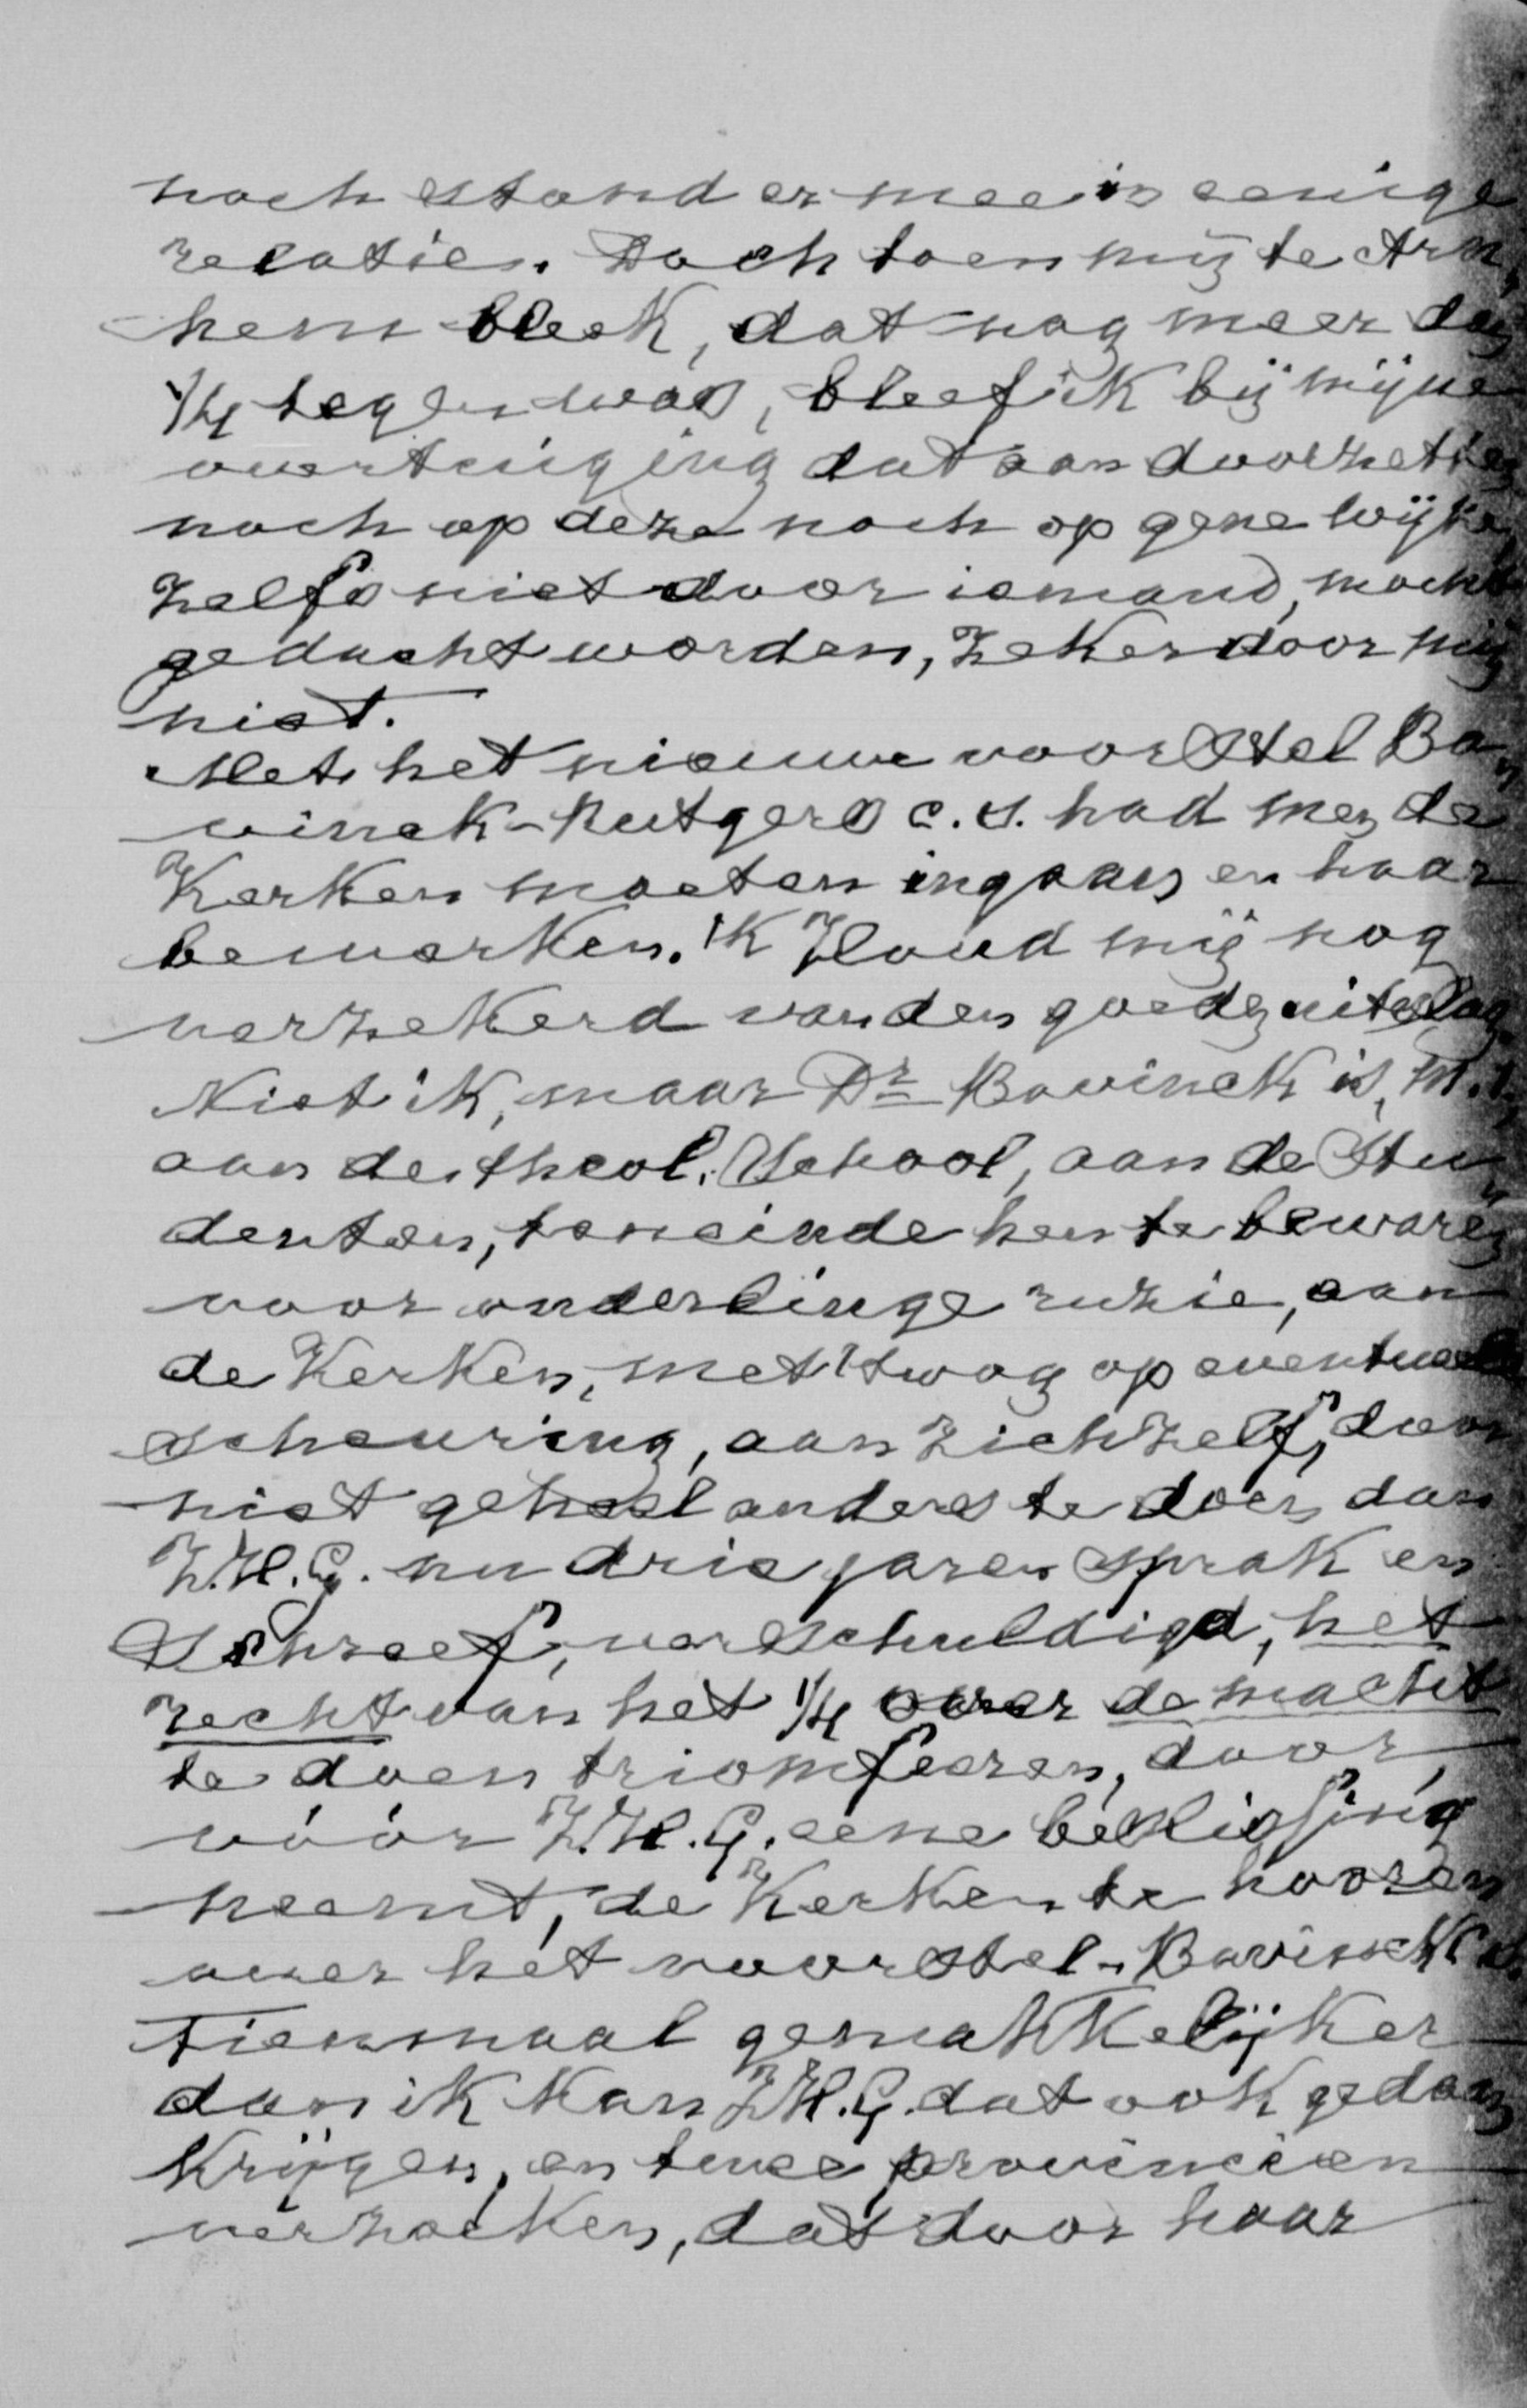 noch stond er mee in eenige
relatie. Doch toen mij te Arn-
hem bleek, dat nog meer dan
1/4 tegen was, bleef ik bij mijne
overtuiging dat aan doorzetten
noch op deze noch op gene wijze,
zelfs niet door iemand, mocht
gedacht worden, zeker door mij
niet.
Met het nieuwe voorstel Ba-
vinck-Rutgers c.s. had men de
Kerken moeten ingaan en haar
bewerken. Ik houd mij nog
verzekerd van den goeden uitslag.
Niet ik, maar Dr Bavinck is, m.i.,
aan de theol. School, aan de Stu-
denten, teneinde hen te bewaren
voor onderlinge ruzie, aan
de Kerken, met 't oog op eventueele
scheuring, aan zichzelf, door
niet geheel anders te doen dan
Z.H.G. nu drie jaren sprak en
schreef, verschuldigd, het
recht van het 1/4 over de macht
te doen triomfeeren, door,
vóór Z.H.G. eene beslissing
neemt, de Kerken te hooren
over het voorstel-Bavinck c.s.
Tienmaal gemakkelijker
dan ik kan Z.H.G. dat ook gedaan
krijgen, en twee provincien
verzoeken, dat door haar